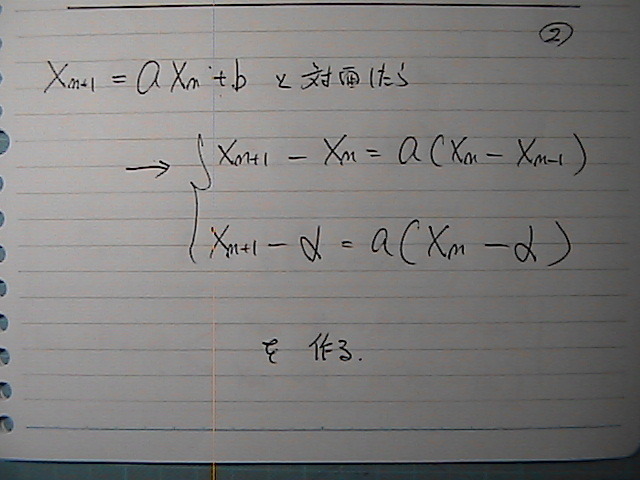 ②
Xn+1 = aXn + b と対面したら
→ { Xn+1 − Xn = a(Xn − Xn−1)
Xn+1 − α = a(Xn − α)
を 作る.